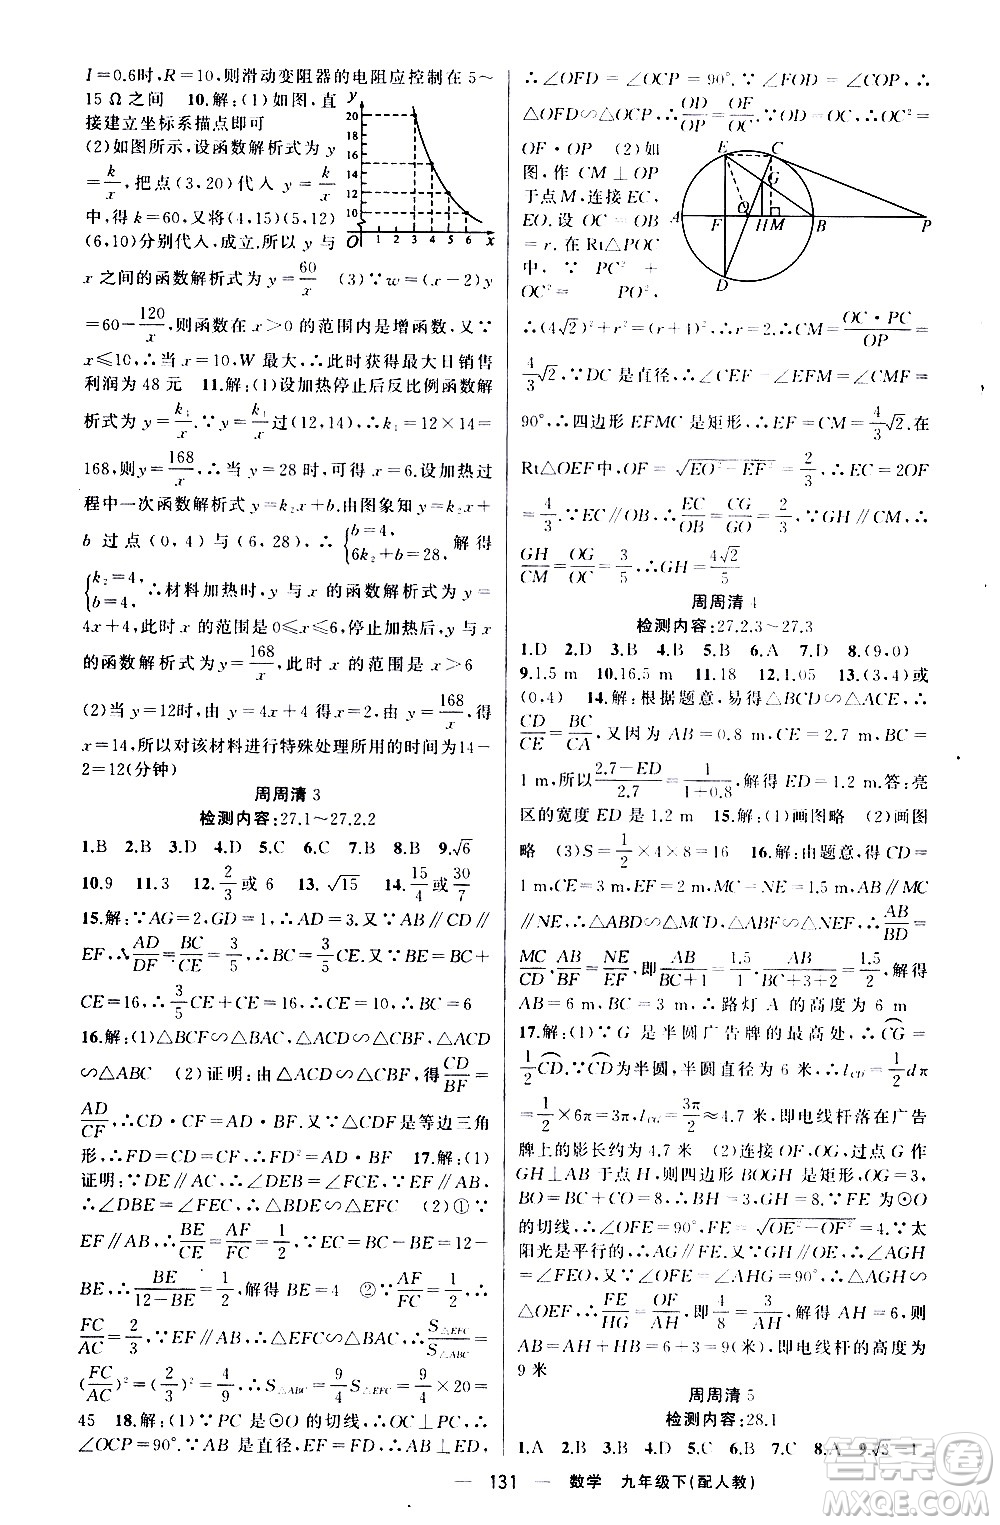 I=0.6时,R=10,则滑动变阻器的电阻应控制在5~
15 Ω之间 10.解:(1)如图,直
接建立坐标系描点即可
(2)如图所示,设函数解析式为y
=k/x,把点(3,20)代入y=k/x
中,得k=60,又将(4,15)(5,12)
(6,10)分别代入,成立.所以y与
x之间的函数解析式为y=60/x (3)∵w=(x-2)y
=60-120/x,则函数在x>0的范围内是增函数,又∵
x≤10,∴当x=10,W最大,∴此时获得最大日销售
利润为48元 11.解:(1)设加热停止后反比例函数解
析式为y=k₁/x.∵y=k₁/x过(12,14),∴k₁=12×14=
168,则y=168/x,∴当y=28时,可得x=6.设加热过
程中一次函数解析式y=k₂x+b.由图象知y=k₂x+
b过点(0,4)与(6,28),∴{b=4, 6k₂+b=28,解得
{k₂=4, b=4,∴材料加热时,y与x的函数解析式为y=
4x+4,此时x的范围是0≤x≤6,停止加热时y与x
的函数解析式为y=168/x,此时x的范围是x>6
(2)当y=12时,可得y=4x+4中x=2,y=168/x,得
x=14,所以对该材料进行特殊处理所用的时间为14-
2=12(分钟)
周周清3
检测内容:27.1~27.2.2
1.B 2.B 3.D 4.D 5.C 6.C 7.B 8.B 9.√6
10.9 11.3 12.2/3或6 13.√15 14.15/4或30/7
15.解:∵AG=2,GD=1,∴AD=3.又∵AB∥CD∥
EF,∴AD/DF=BC/CE=3/5,∴BC=3/5CE.又∵BE=BC+
CE=16,∴3/5CE+CE=16,∴CE=10,∴BC=6
16.解:(1)△BCF∽△DBC,△CDF∽△EBF,△DCB
∽△ABE (2)证明:由△DCB∽△CBF,得CD/BF=
AD/CF,∴CD·CF=AD·BF.又∵△CDF是等边三角
形,∴FD=CD=CF,∴FD²=AD·BF 17.解:(1)
证明:∵DE∥AC,∴∠DEB=∠FCE.∵EF∥AB,
∴∠DBE=∠FEC,∴△BDE∽△EFC (2)①∵
EF∥AB,∴BE/CE=AF/FC=1/2.∵EC=BC-BE=12-
BE,∴BE/(12-BE)=1/2,解得BE=4 ②∵AF/FC=1/2,∴
FC/AC=2/3.∵EF∥AB,∴△EFC∽△BAC,∴S△EFC/S△ABC=
(FC/AC)²=(2/3)²=4/9,∴S△ABC=9/4S△EFC=9/4×20=
45 18.解:(1)∵PC是⊙O的切线,∴OC⊥PC,∴
∠OCP=90°.∵AB是直径,EF=FD,∴AB⊥ED,∴
y
20
18
16
14
12
10
O 1 2 3 4 5 6 x
∴∠OFD=∠OCP=90°.∵∠FOD=∠COP,∴
△OFD∽△OCP,∴OD/OP=OF/OC.∵OD=OC,∴OC²=
OF·OP (2)如
图,作CM⊥OP
于点M,连接EC,
EO.设OC=OB
=r.在Rt△POC
中,∵PC²+
OC²=PO²,
∴(4√2)²+r²=(r+4)²,∴r=2.∴CM=OC·PC/OP=
4/3√2.∵DC是直径,∴∠CEF=∠EFM=∠CMF=
90°,∴四边形EFMC是矩形,∴EF=CM=4/3√2,在
Rt△OEF中,OF=√(EO²-EF²)=2/3,∴EC=2OF
=4/3.∵EC∥OB,∴EC/OB=CG/GO=2/3.∵GH∥CM,∴
GH/CM=OG/OC=3/5,∴GH=4√2/5
E C G A F O H M B P D
周周清4
检测内容:27.2.3~27.3
1.D 2.D 3.D 4.B 5.B 6.A 7.D 8.(9,0)
9.1.5 m 10.16.5 m 11.18 12.1.05 13.(3,4)或
(0,4) 14.解:根据题意,易得△BCD∽△ACE,∴
CD/CE=BC/CA,又因为AB=DE,CE=2.7 m,BC=
1 m,所以(2.7-ED)/2.7=1/(1+0.8),解得ED=1.2 m.答:亮
区的宽度ED是1.2 m 15.解:(1)画图略 (2)画图
略 (3)S=1/2×4×8=16 16.解:由题意,得CD=
1 m,CE=3 m,EF=2 m,MC=NE=1.5 m,AB∥MC
∥NE,∴△ABD∽△MCD,△ABF∽△NEF,∴AB/BD=
MC/CD,AB/BF=NE/EF,即AB/(BC+1)=1.5/1,AB/(BC+3+2)=1.5/2,解得
AB=6 m,BC=3 m,∴路灯A的高度为6 m
17.解:(1)∵G是半圆广告牌的最高处,∴CG=
1/2CD.∵CD为半圆,直径为6米,∴lCD=1/2dπ
=1/2×6π=3π,lCG=3π/2≈4.7米,即电线杆落在广告
牌上的影长约为4.7米 (2)连接OF,OG,过点G作
GH⊥AB于点H,则四边形BOGH是矩形,OG=3,
BO=BC+CO=5+3=8,∴BH=3,GH=8.∵FE为⊙O
的切线,∴∠OFE=90°,FE=√(OE²-OF²)=4.∵太
阳光是平行的,∴AG∥EF.又∵GH∥OE,∴∠AGH
=∠FEO,又∵∠OFE=∠AHG=90°,∴△AGH∽
△OEF,∴FE/HG=OF/AH,即4/8=3/AH,解得AH=6,则
AB=AH+BH=6+3=9(米),即电线杆的高度为
9米
周周清5
检测内容:28.1
1.A 2.B 3.C 4.B 5.D 6.C 7.C 8.A 9.√3-1
— 131 — 数学 九年级下(配人教)
答案圈
MXQE.COM